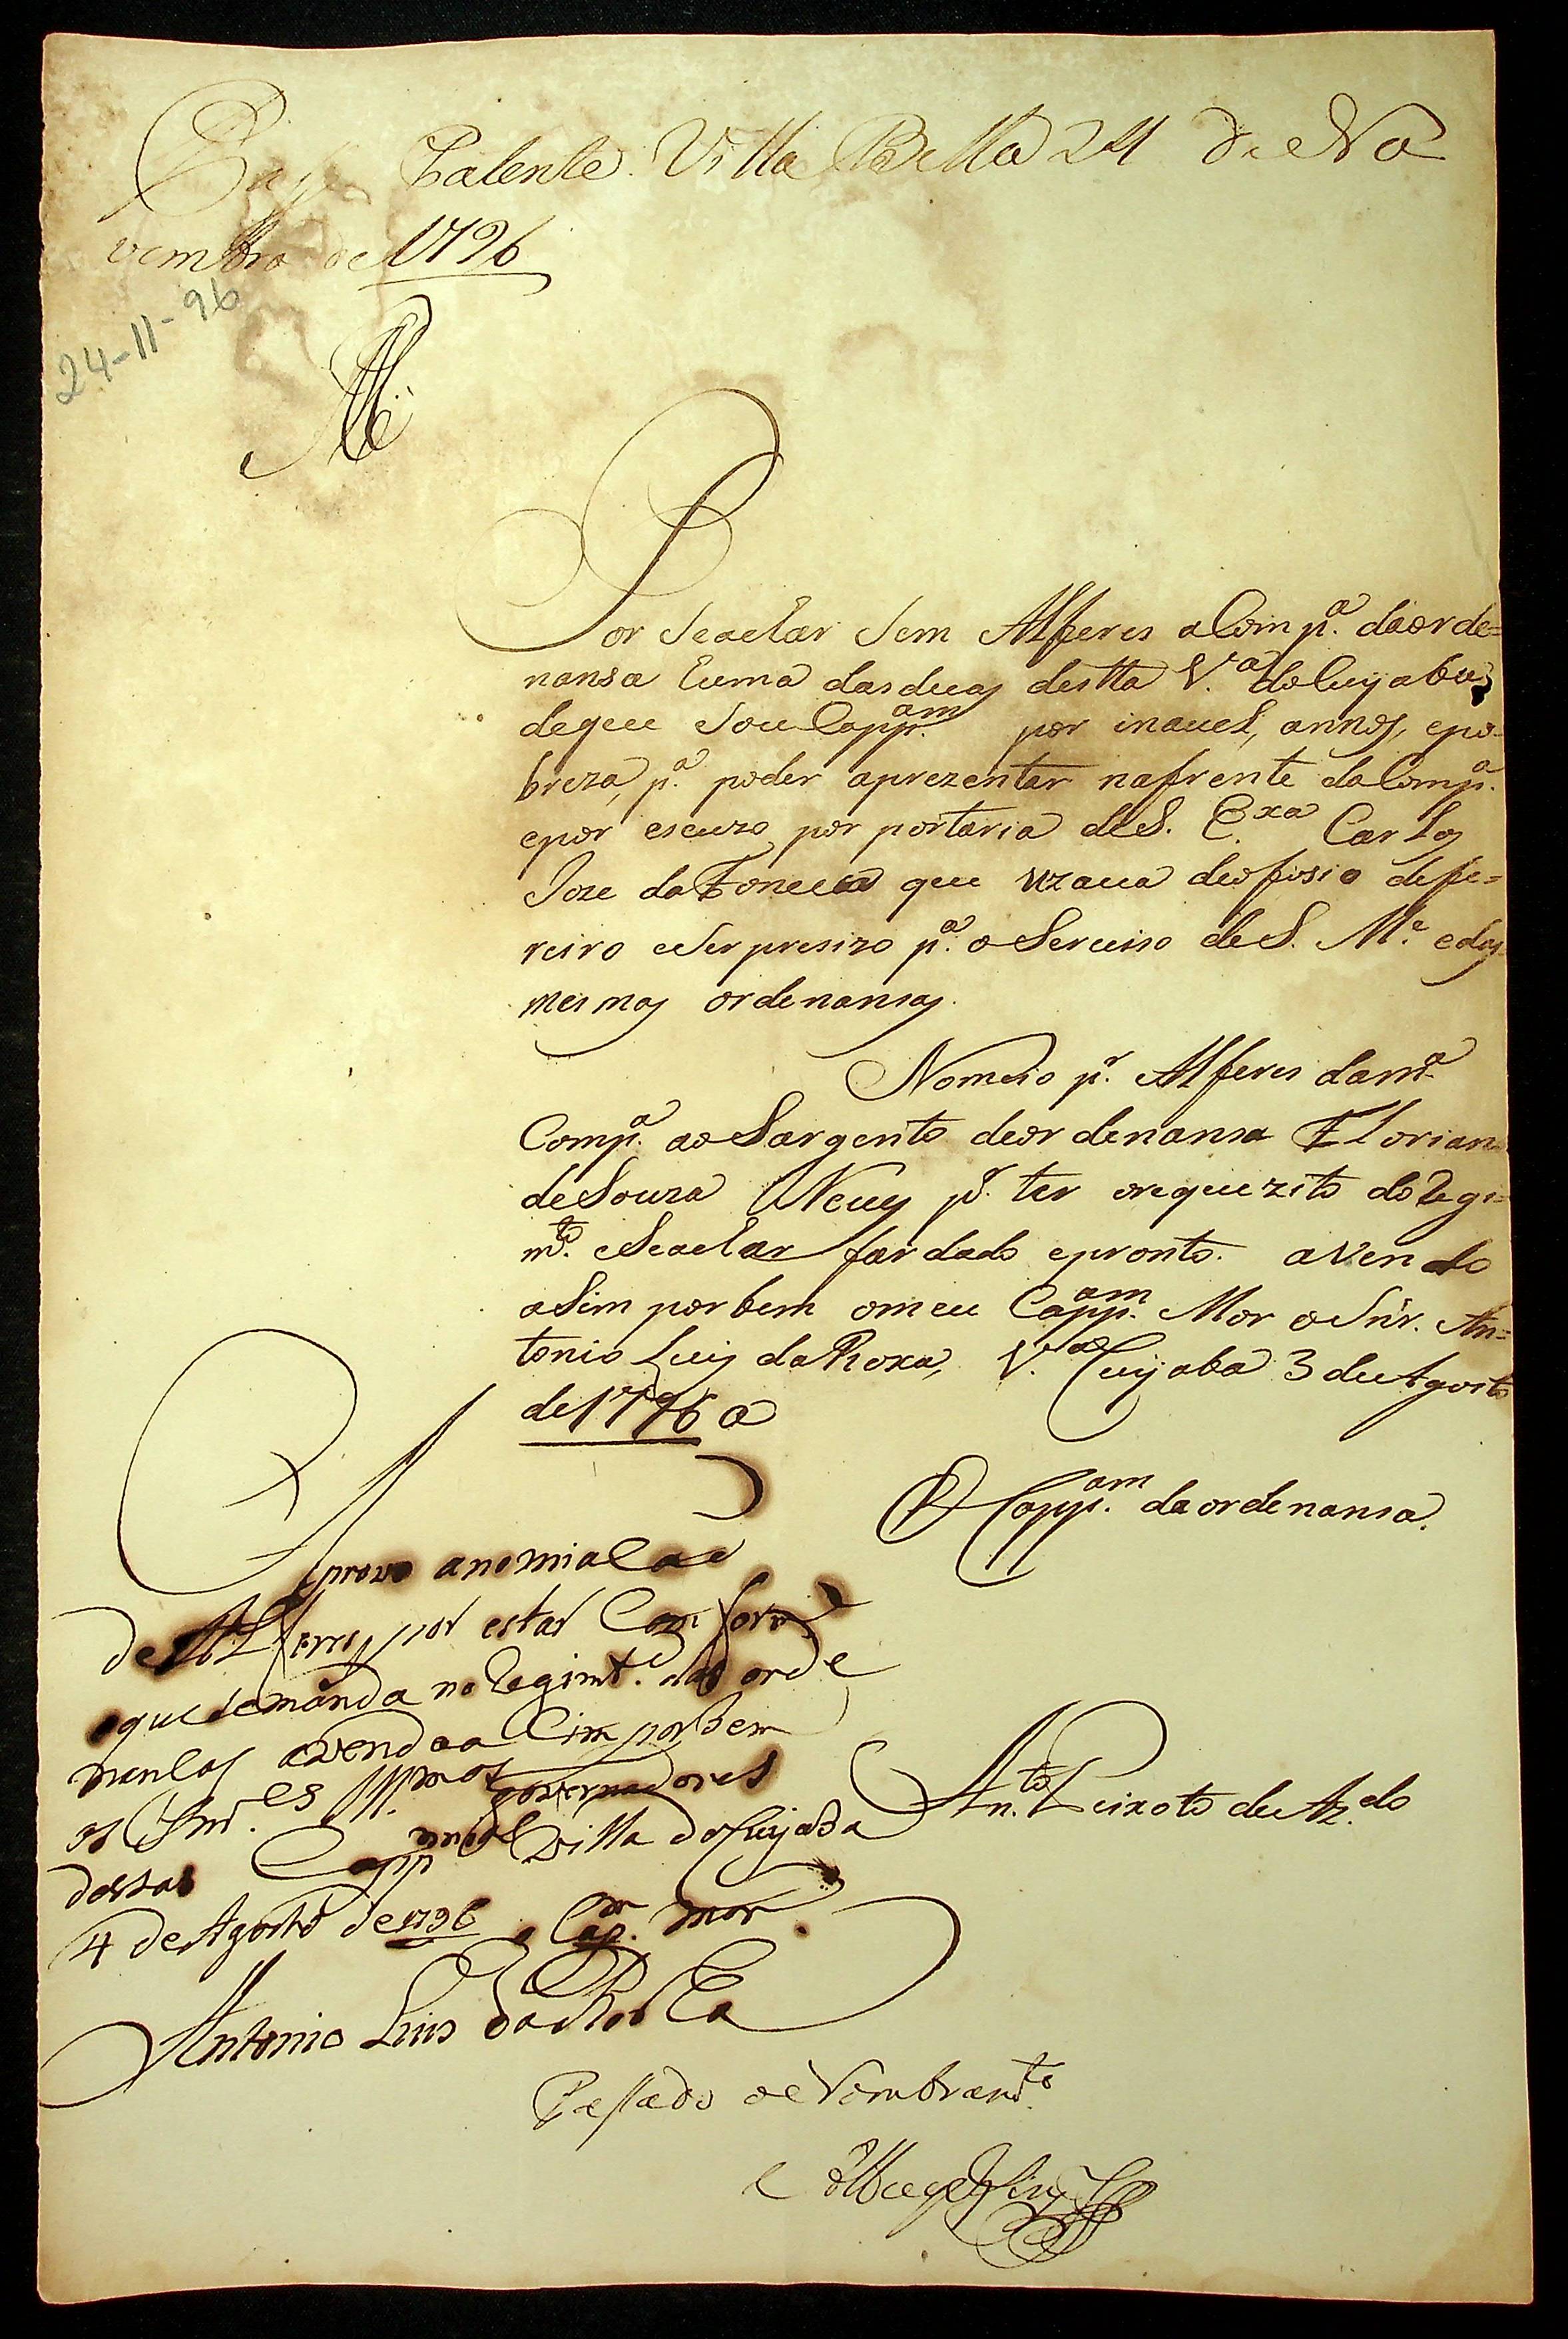 Passe Patente. Villa Bella 24 de No
vembro de 1796
24-11-96
Por Seachar Sem Alferes a Comp.ª daorde=
nansa huma dasduas destta V.ª do Cuyaba
deque Sou Capp.am por inauel, annos, epo=
breza, p.ª poder aprezentar nafrente da Comp.ª
epor escuzo por portaria deS. E.xa Carlos
Joze da Fonceca que uzaua deofisio defe=
reiro eSer presizo p.ª o Seruiso deS. M.e edas
mesmas ordenansas.
Nomeio p.r Alferes dam.ª
Comp.ª ao Sargento deordenansa Florian
de Souza Neues p.r ter orequezito do Regi=
m.to eSeachar fardado epronto. avendo
aSim por bem omeu Capp.am Mor o Snr. An=
tonio Luis da Roxa, V.ª Cuyaba 3 de Agosto
de 1796 a
O Capp.am da ordenansa.
Ant.o Peixoto de Az.do
Aprovo anomiasao
de Alferes por estar Comforme
oque semanda no Regimt.o das orde
nansas avendoa Cim por Bem
os Snr.es Ill.mos governadores
destas Capp Villa do Cuyaba
4 de Agosto de 1796 o Cap.m mor
Antonio Luis da Rocha
Passado o Nombram.to